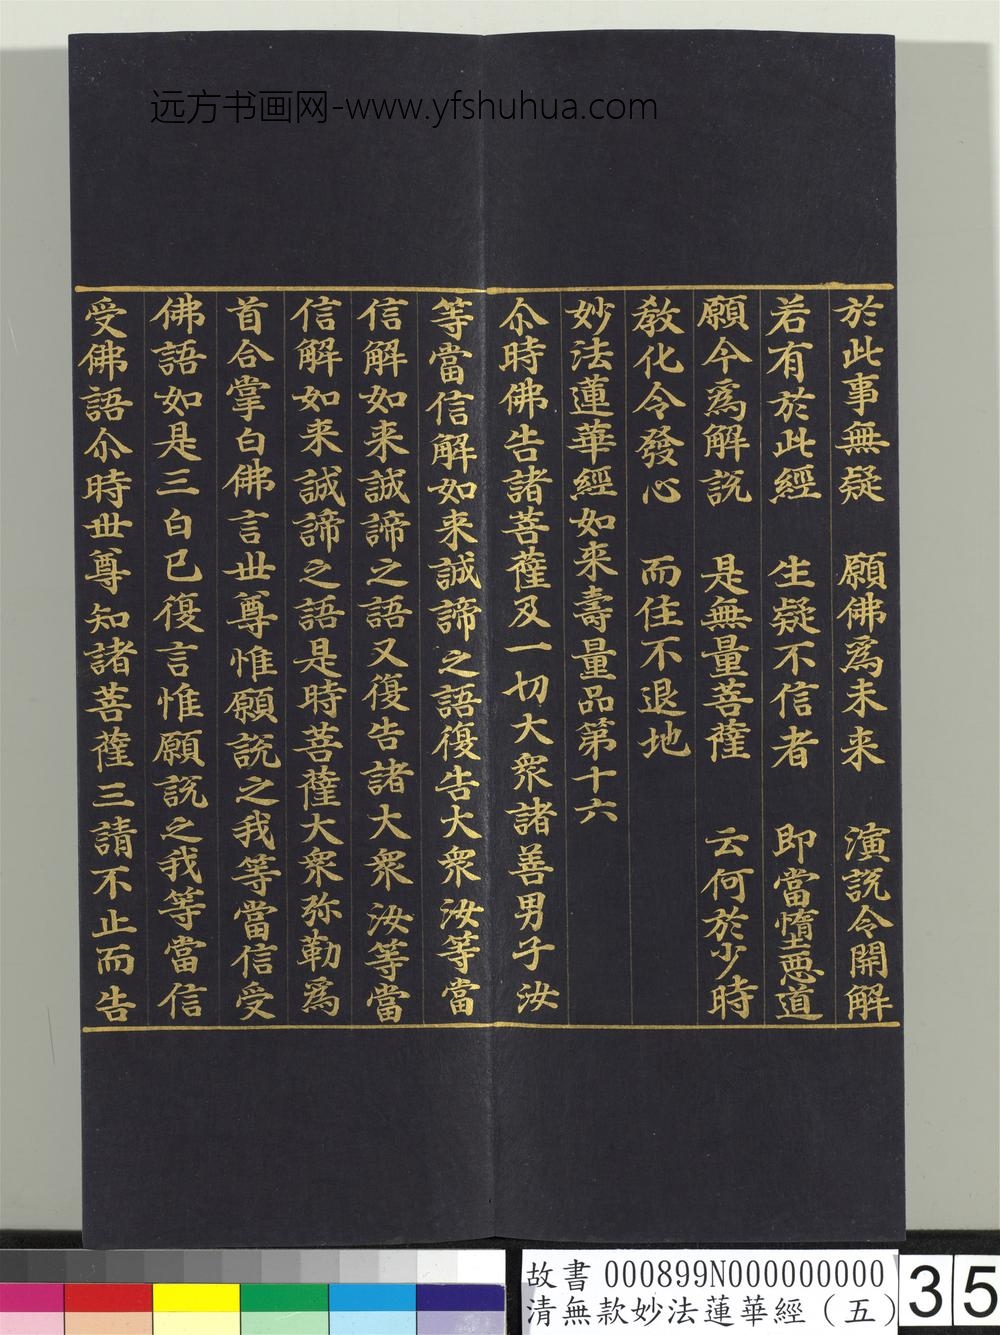 远方书画网-www.yfshuhua.com
於此事無疑　願佛為未来　演説令開解
若有於此經　生疑不信者　即當墮惡道
願今為解説　是無量菩薩　云何於少時
教化令發心　而住不退地
妙法蓮華經如来壽量品第十六
尒時佛告諸菩薩及一切大衆諸善男子汝
等當信解如来誠諦之語復告大衆汝等當
信解如来誠諦之語又復告諸大衆汝等當
信解如来誠諦之語是時菩薩大衆弥勒為
首合掌白佛言世尊惟願説之我等當信受
佛語如是三白已復言惟願説之我等當信
受佛語尒時世尊知諸菩薩三請不止而告
故書 000899N000000000
清無款妙法蓮華經（五）
35